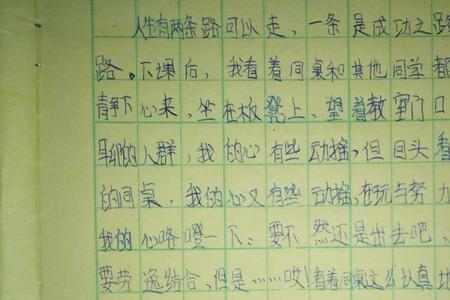 人生有两条路可以走,一条是成功之路
路。下课后,我看着同桌和其他同学都
静下心来,坐在板凳上,望着教室门口
聊的人群,我的心有些动摇,但回头看
的同桌,我的心又有些动摇,在玩与努力
我的心咯噔一下:要不然还是出去吧、
要劳逸结合,但是……哎!看着同桌这么认真地